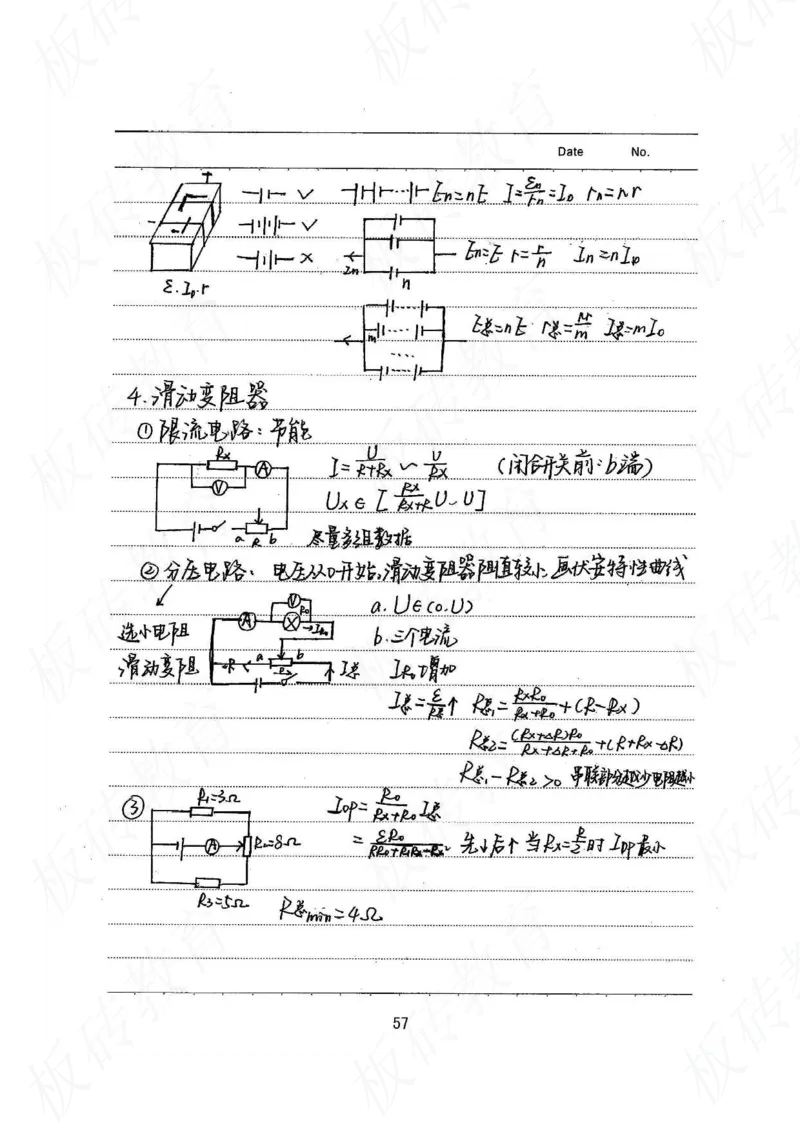 Date No.
√ En=nE I=εn/rn=I₀ rn=nr
√
× En=E r=r/n In=nI₀
In n
ε.I₀.r
E总=nE r总=nr/m I总=mI₀
m
4.滑动变阻器
①限流电路:节能
Rx A V a R b
I=U/(R+Rx) ~ U/Rx (闭合开关前:b端)
Ux∈[Rx/(Rx+R)U~U]
尽量多组数据
②分压电路:电压从0开始,滑动变阻器阻值较小,画伏安特性曲线
选小电阻
滑动变阻
V R₀ A a b I总
a.U∈(0.U)
b.三个电流
IR₀增加
I总=ε/R总↑ R总₁=RxR₀/(Rx+R₀)+(R-Rx)
R总₂=(Rx+ΔR)R₀/(Rx+ΔR+R₀)+(R+Rx-ΔR)
R总₁-R总₂>0 串联部分越少电阻越小
③ R₁=3Ω A R₂=8Ω R₃=5Ω
IOP=R₀/(Rx+R₀)I总
=εR₀/(RR₀+RRx-Rx²) 先↓后↑ 当Rx=R/2时 IOP最小
R总min=4Ω
57
板砖教育